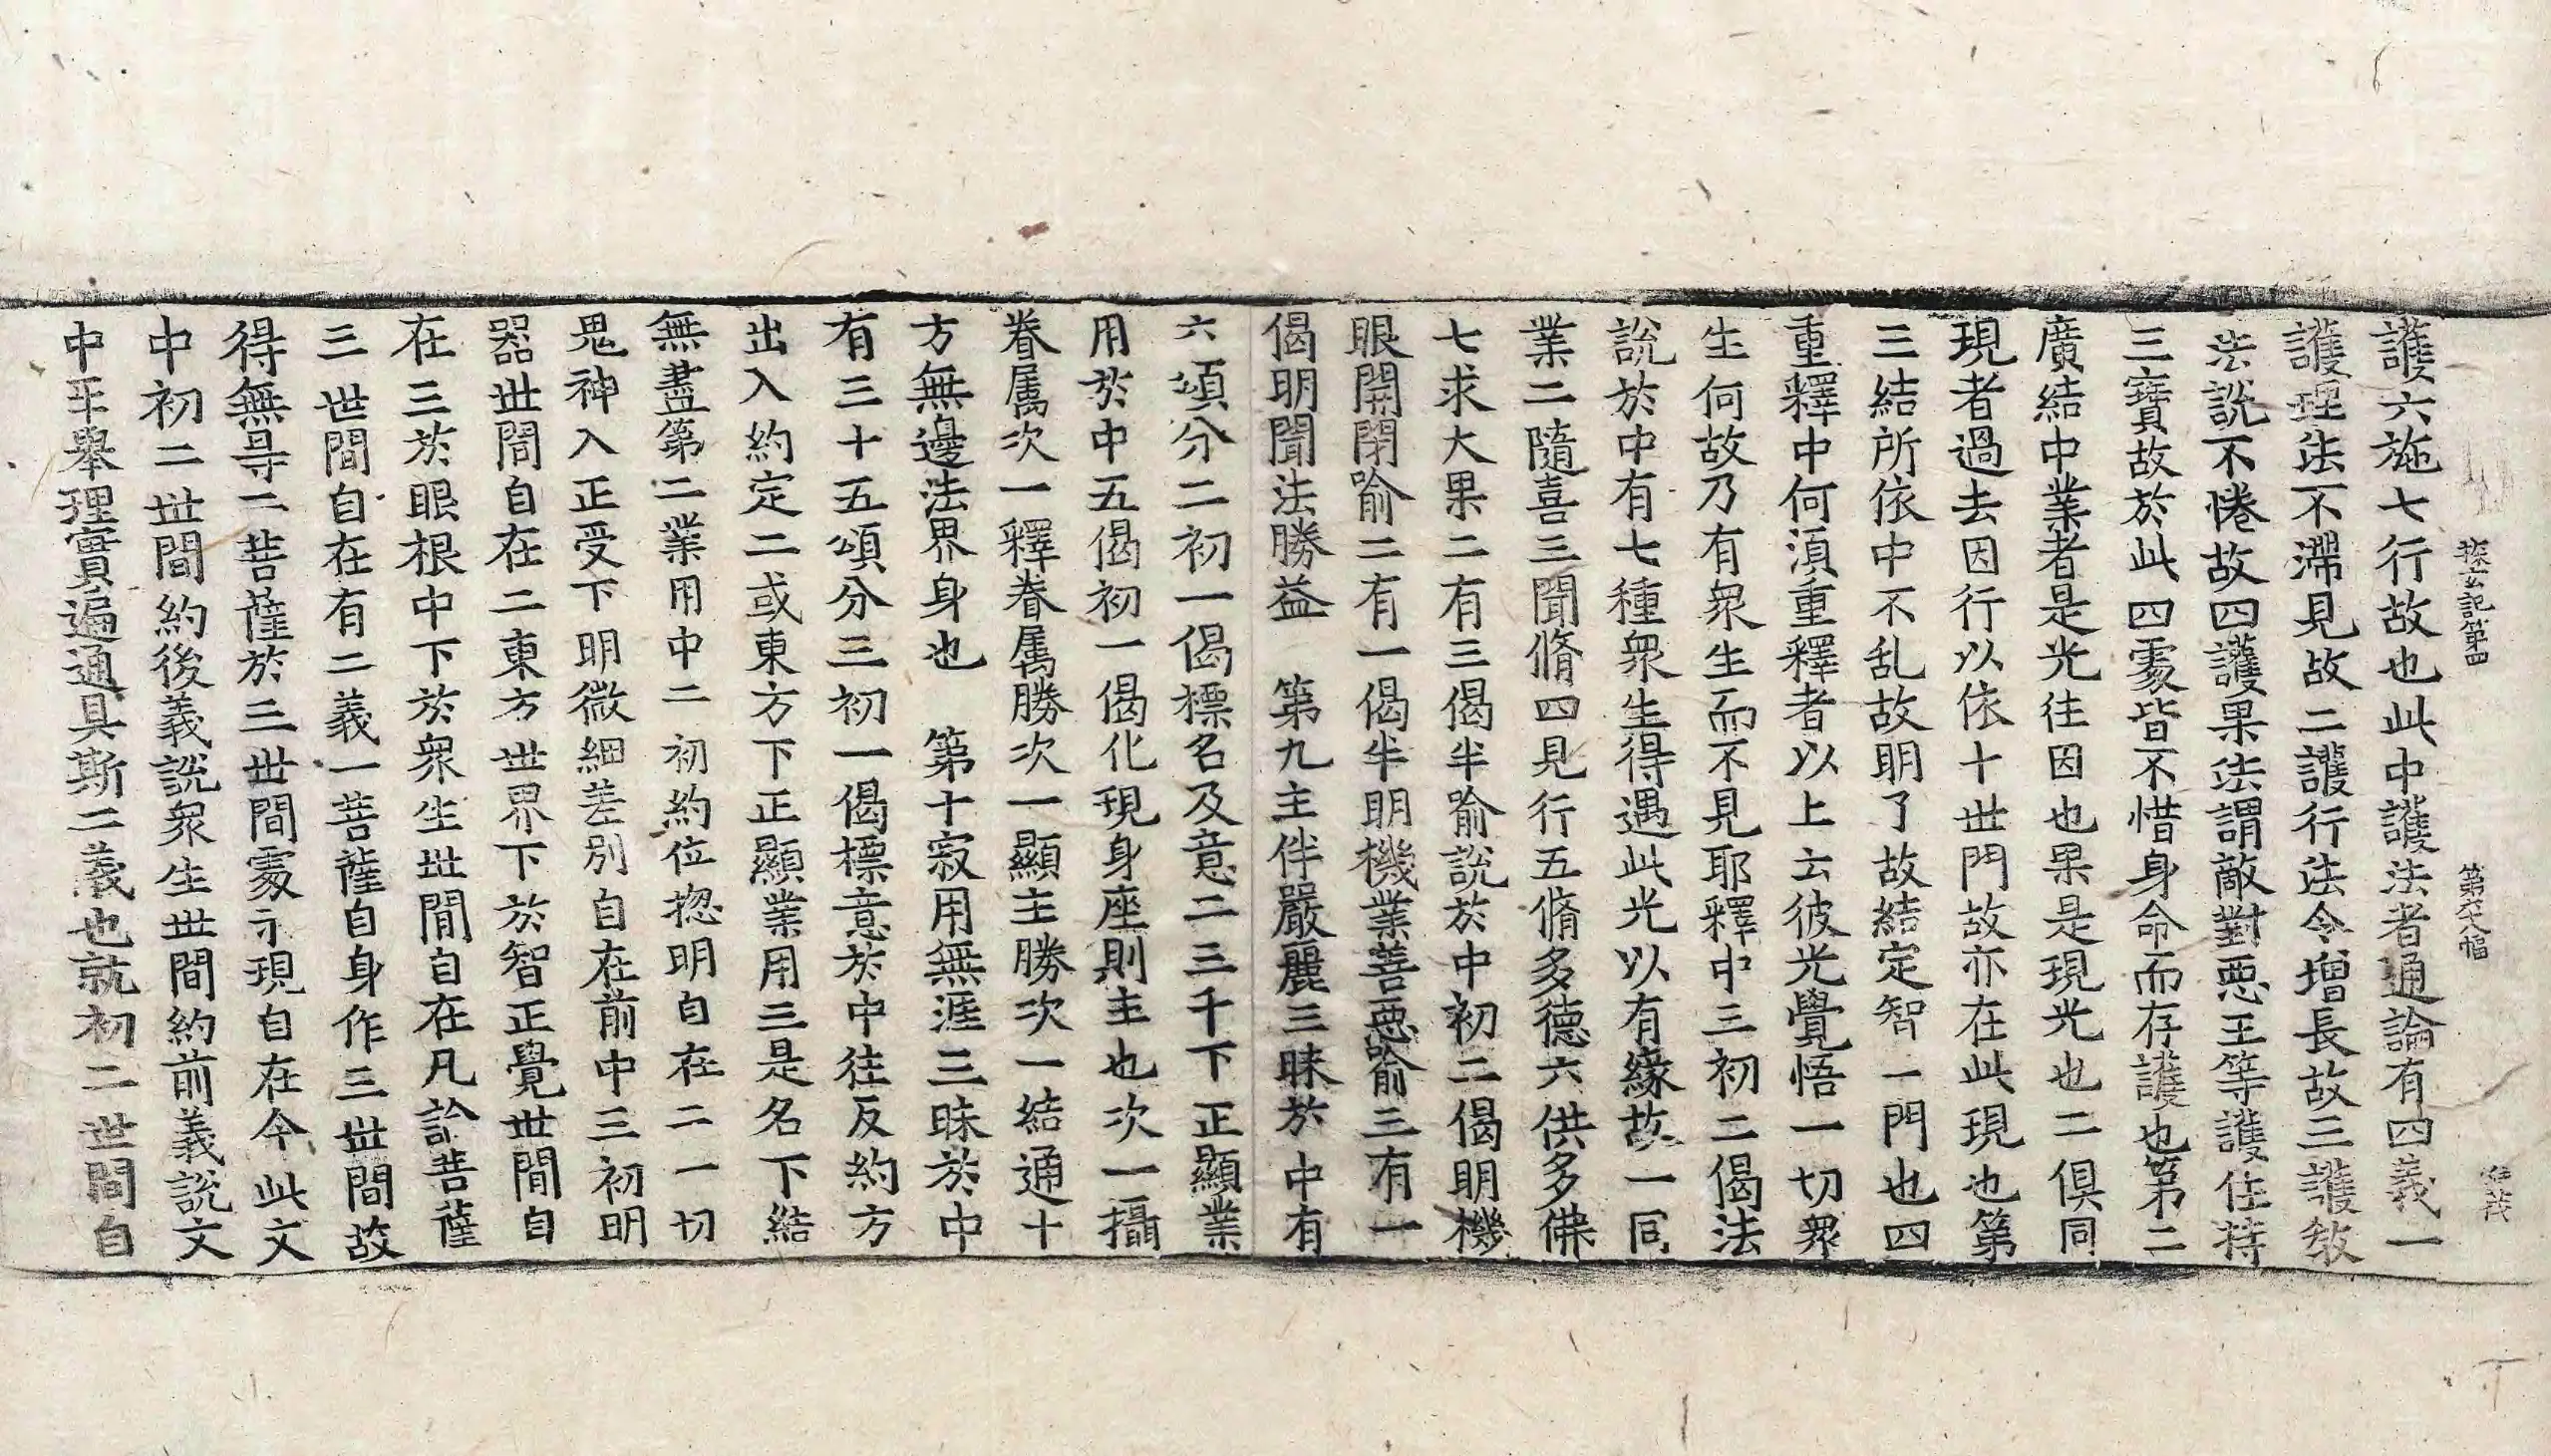 探玄記第四 第六十八幅
護六施七行故也此中護法者通論有四義一
護理法不滯見故二護行法令增長故三護教
法說不惓故四護果法謂敵對惡王等護住持
三寶故於此四處皆不惜身命而存護也第二
廣結中業者是光往因也果是現光也二俱同
現者過去因行以依十世門故亦在此現也第
三結所依中不乱故明了故結定智一門也四
重釋中何湏重釋者以上云彼光覺悟一切衆
生何故乃有衆生而不見耶釋中三初二偈法
說於中有七種衆生得遇此光以有緣故一同
業二隨喜三聞脩四見行五脩多德六供多佛
七求大果二有三偈半喻說於中初二偈明機
眼開閉喻二有一偈半明機業善惡喻三有一
偈明聞法勝益 第九主伴嚴麗三昧於中有
六頌分二初一偈標名及意二三千下正顯業
用於中五偈初一偈化現身座則主也次一攝
眷属次一釋眷属勝次一顯主勝次一結通十
方無邊法界身也 第十寂用無涯三昧於中
有三十五頌分三初一偈標意於中往反約方
出入約定二或東方下正顯業用三是名下結
無盡第二業用中二初約位揔明自在二一切
鬼神入正受下明微細差別自在前中三初明
器世間自在二東方世界下於智正覺世間自
在三於眼根中下於衆生世間自在凡論菩薩
三世間自在有二義一菩薩自身作三世間故
得無㝵二菩薩於三世間處示現自在今此文
中初二世間約後義說衆生世間約前義說文
中平舉理實遍通具斯二義也就初二世間自